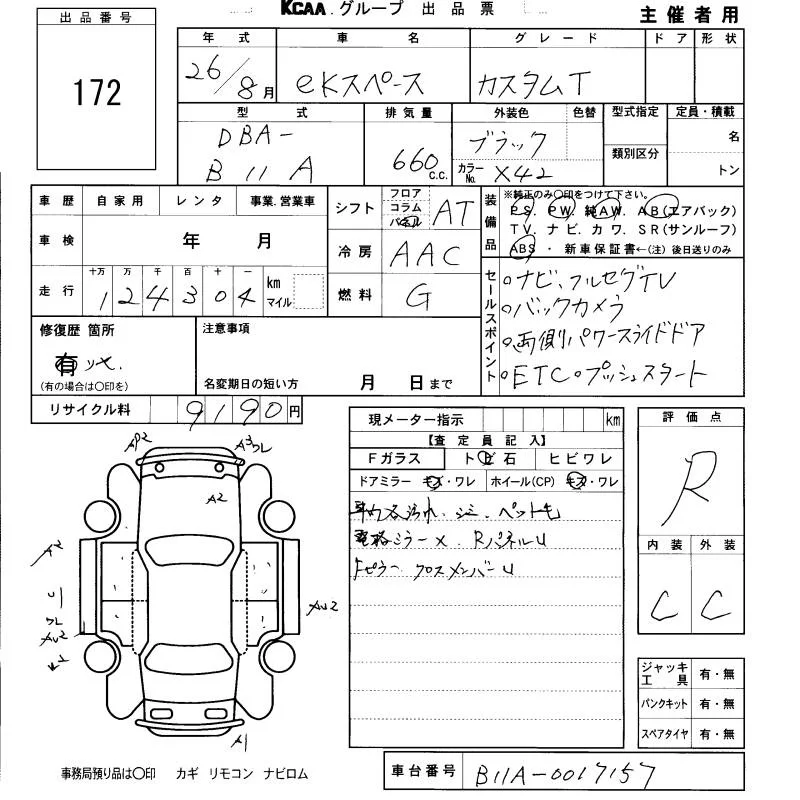 KCAA.グループ 出品票
主催者用
出品番号
172
年式 車名 グレード ドア 形状
26/8月 eKスペース カスタムT
型式 排気量 外装色 色替 型式指定 定員・積載
DBA-
B11A
660 c.c.
ブラック
カラーNo. X42
類別区分
名
トン
車歴 自家用 レンタ 事業.営業車
車検 年 月
走行 十万 万 千 百 十 一
124304 km マイル
シフト フロア コラム パネル AT
冷房 AAC
燃料 G
装備品
※純正のみ〇印をつけて下さい。
PS. PW. 純AW. AB(エアバック)
TV. ナビ. カワ. SR(サンルーフ)
ABS ・ 新車保証書←(注) 後日送りのみ
セールスポイント
○ナビ、フルセグTV
○バックカメラ
○両側パワースライドドア
○ETC○プッシュスタート
修復歴 箇所
有
(有の場合は〇印を)
注意事項
名変期日の短い方 月 日まで
リサイクル料 9190円
現メーター指示 km
【査定員記入】
Fガラス トビ石 ヒビワレ
ドアミラー キズ・ワレ ホイール(CP) キズ・ワレ
汚れ. シミ. ペット毛
電格ミラー× RパネルU
ピラー クロスメンバーU
評価点
R
内装 外装
C C
ジャッキ 工具 有・無
パンクキット 有・無
スペアタイヤ 有・無
AP2
A3
ワレ
A2
A2
ワレ
AU2
AU2
A1
事務局預り品は〇印 カギ リモコン ナビロム
車台番号 B11A-0017157